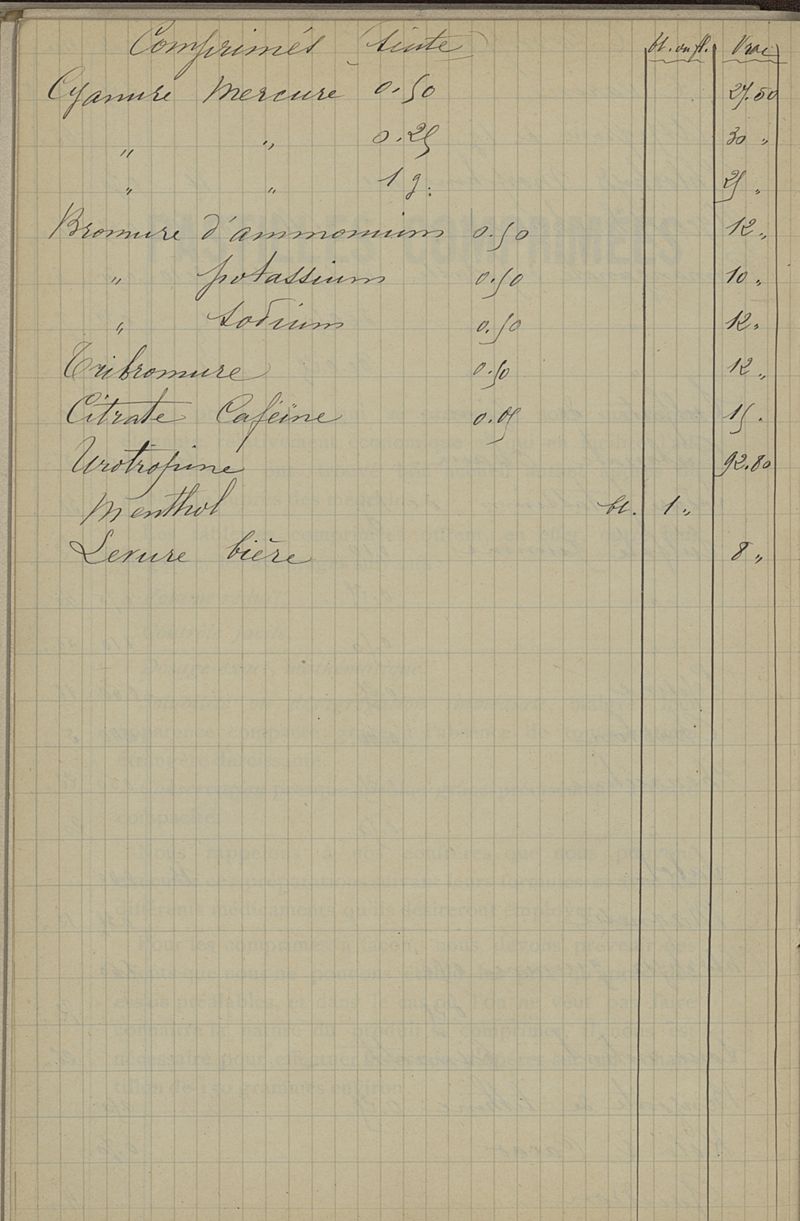 Comprimés (suite) bt. ou fl. Vrac
Cyanure Mercure 0.50 27.50
" " 0.25 30 "
" " 1 g. 25 "
Bromure d'ammonium 0.50 12 "
" potassium 0.50 10 "
" sodium 0.50 12 "
Tribromure 0.50 12 "
Citrate Caféine 0.05 15.
Urotropine 92.80
Menthol bt. 1 "
Levure bière 8 "